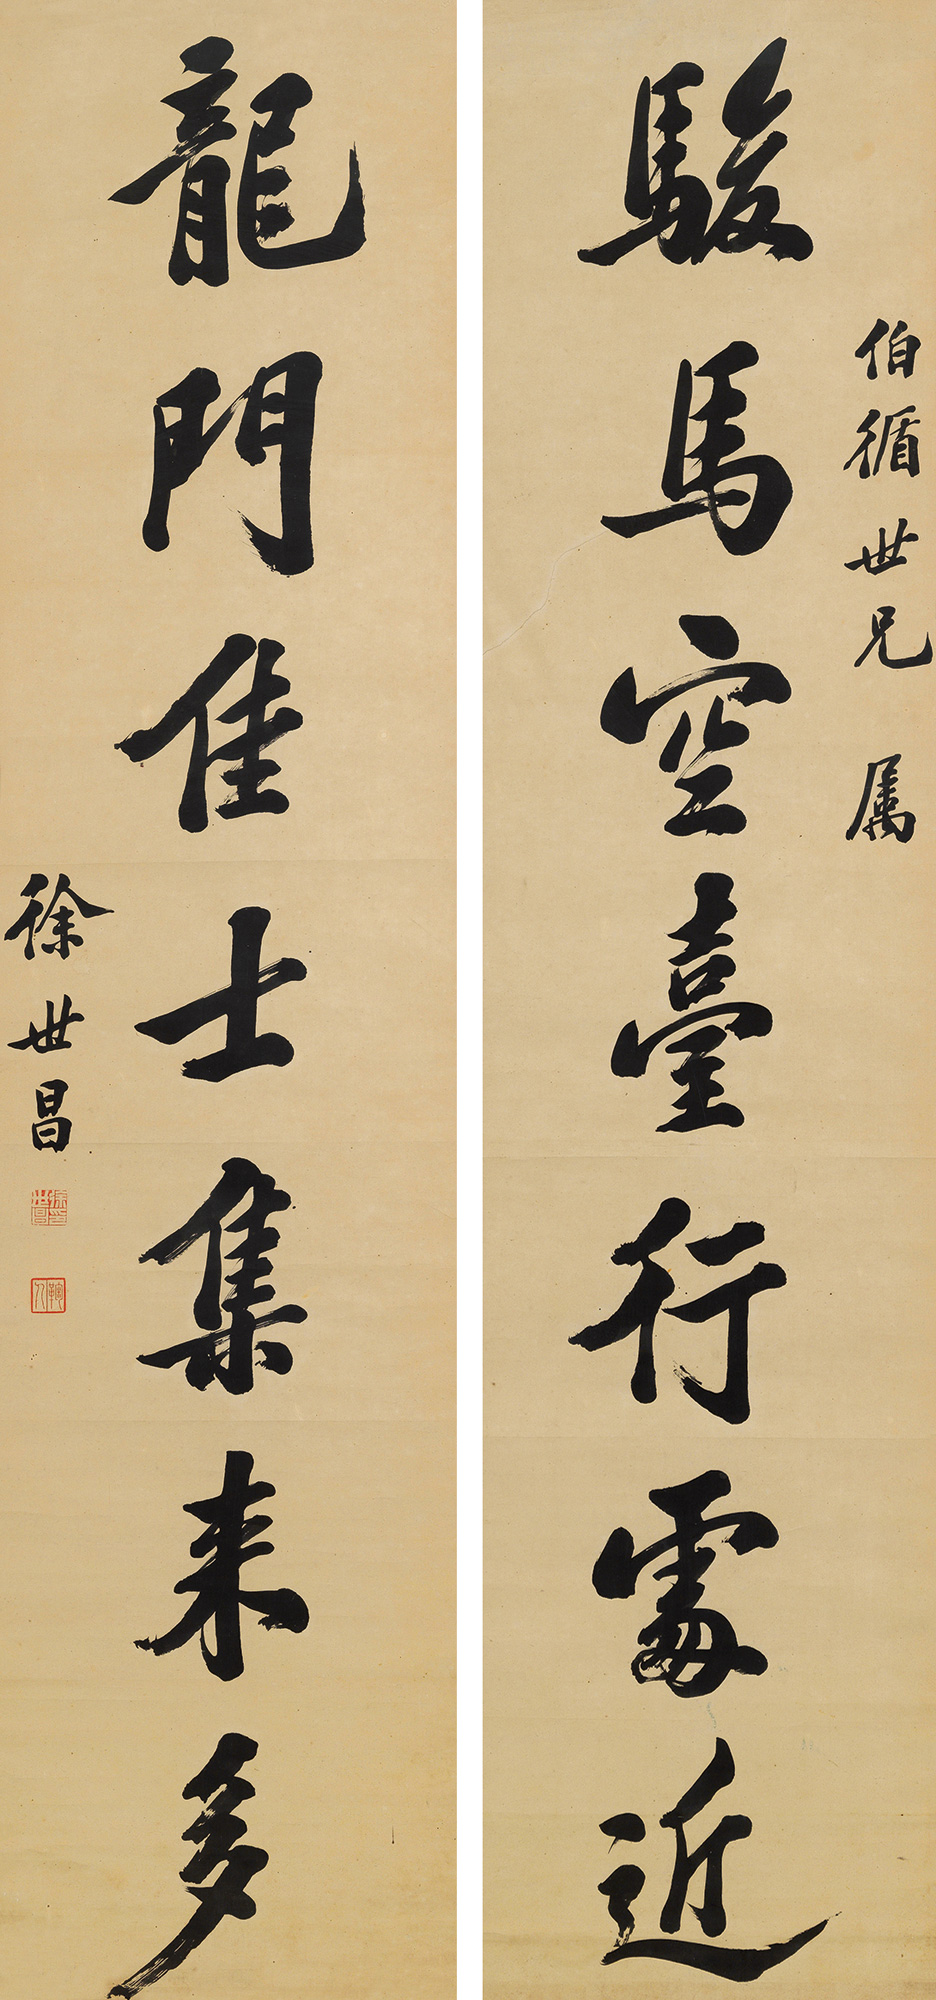 伯循世兄 属
駿馬空臺行處近
龍門佳士集来多
徐世昌
徐印世昌
鞠人